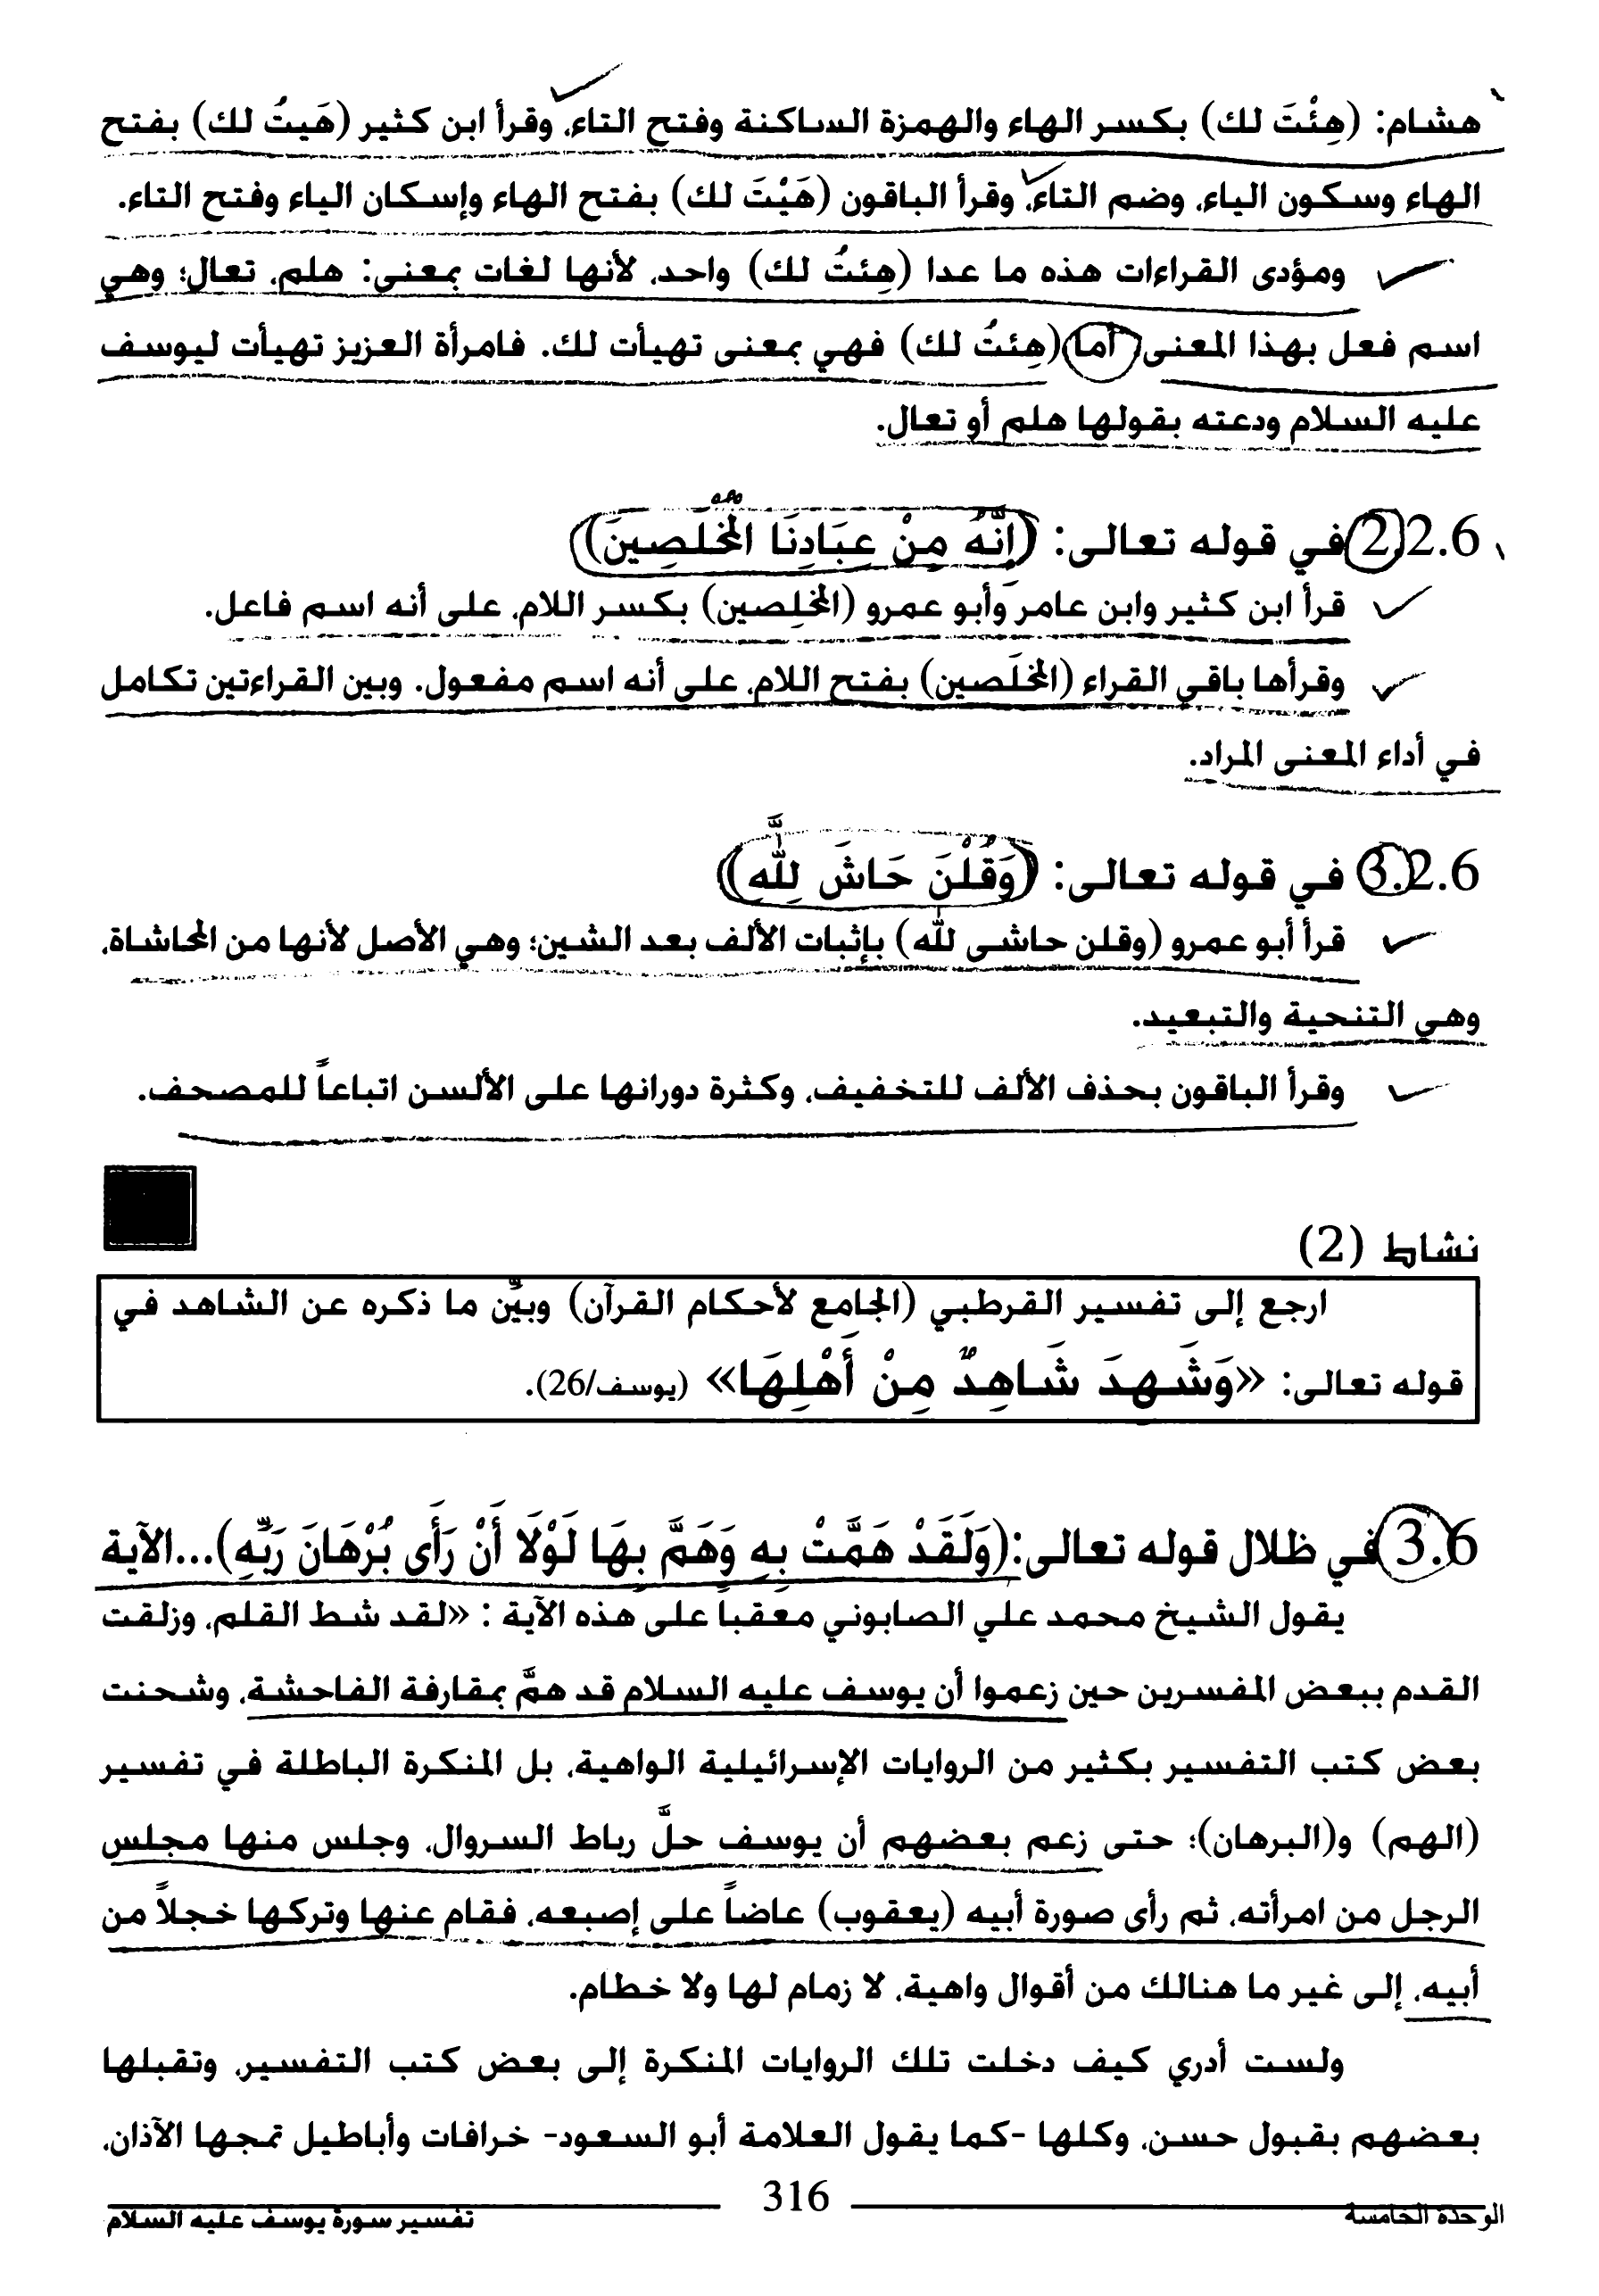 هشام: (هِئْتَ لك) بكسر الهاء والهمزة الساكنة وفتح التاء، وقرأ ابن كثير (هَيتُ لك) بفتح
الهاء وسكون الياء، وضم التاء، وقرأ الباقون (هَيْتَ لك) بفتح الهاء وإسكان الياء وفتح التاء.
ومؤدى القراءات هذه ما عدا (هِئتُ لك) واحد، لأنها لغات بمعنى: هلم، تعال؛ وهي
اسم فعل بهذا المعنى، أما (هِئتُ لك) فهي بمعنى تهيأت لك. فامرأة العزيز تهيأت ليوسف
عليه السلام ودعته بقولها هلم أو تعال.
2.2.6 في قوله تعالى: (إِنَّهُ مِنْ عِبَادِنَا الْمُخْلَصِينَ)
قرأ ابن كثير وابن عامر وأبو عمرو (المخلِصين) بكسر اللام، على أنه اسم فاعل.
وقرأها باقي القراء (المخلَصين) بفتح اللام، على أنه اسم مفعول. وبين القراءتين تكامل
في أداء المعنى المراد.
3.2.6 في قوله تعالى: (وَقُلْنَ حَاشَ لِلَّهِ)
قرأ أبو عمرو (وقلن حاشى لله) بإثبات الألف بعد الشين؛ وهي الأصل لأنها من المحاشاة،
وهي التنحية والتبعيد.
وقرأ الباقون بحذف الألف للتخفيف، وكثرة دورانها على الألسن اتباعاً للمصحف.
نشاط (2)
ارجع إلى تفسير القرطبي (الجامع لأحكام القرآن) وبيِّن ما ذكره عن الشاهد في
قوله تعالى: «وَشَهِدَ شَاهِدٌ مِنْ أَهْلِهَا» (يوسف/26).
3.6 في ظلال قوله تعالى: (وَلَقَدْ هَمَّتْ بِهِ وَهَمَّ بِهَا لَوْلَا أَنْ رَأَى بُرْهَانَ رَبِّهِ)...الآية
يقول الشيخ محمد علي الصابوني معقباً على هذه الآية : «لقد شط القلم، وزلقت
القدم ببعض المفسرين حين زعموا أن يوسف عليه السلام قد همَّ بمقارفة الفاحشة، وشحنت
بعض كتب التفسير بكثير من الروايات الإسرائيلية الواهية، بل المنكرة الباطلة في تفسير
(الهم) و(البرهان)؛ حتى زعم بعضهم أن يوسف حلَّ رباط السروال، وجلس منها مجلس
الرجل من امرأته، ثم رأى صورة أبيه (يعقوب) عاضاً على إصبعه، فقام عنها وتركها خجلاً من
أبيه، إلى غير ما هنالك من أقوال واهية، لا زمام لها ولا خطام.
ولست أدري كيف دخلت تلك الروايات المنكرة إلى بعض كتب التفسير، وتقبلها
بعضهم بقبول حسن، وكلها -كما يقول العلامة أبو السعود- خرافات وأباطيل تمجها الآذان،
الوحدة الخامسة 316 تفسير سورة يوسف عليه السلام